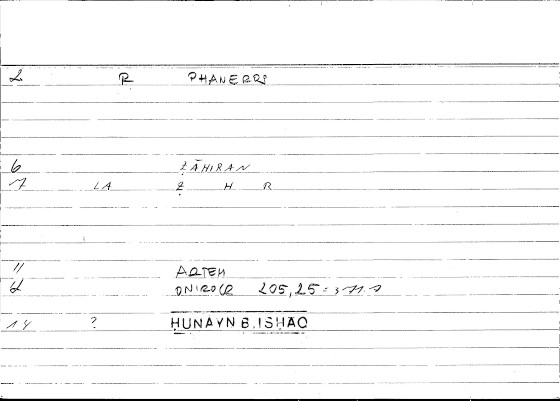 2 R PHANERRS
6 ẒĀHIRAN
7 LA Ẓ H R
11 ARTEM
12 ONIROCR 205,25 =
14 ? HUNAYN B. ISHAQ